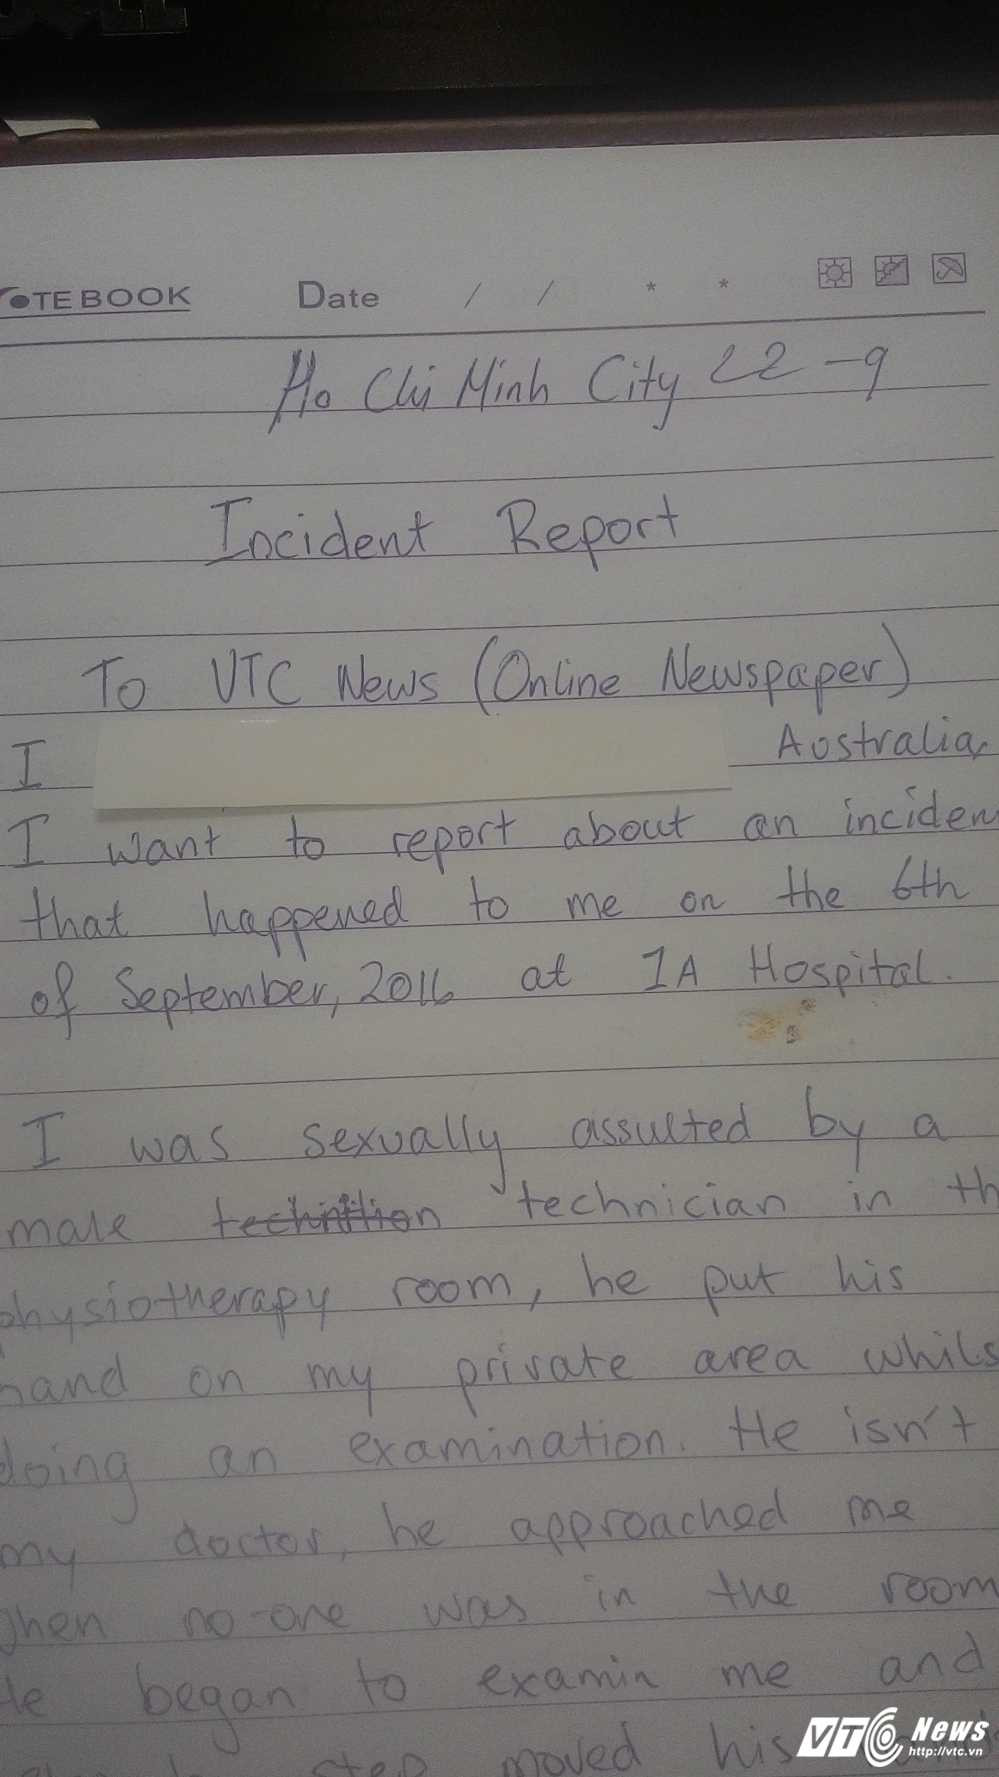 NOTEBOOK Date / / * *
Ho Chi Minh City 22-9
Incident Report
To VTC News (Online Newspaper)
I Australia,
I want to report about an inciden
that happened to me on the 6th
of September, 2016 at 1A Hospital.
I was sexually assulted by a
male technition technician in th
physiotherapy room, he put his
hand on my private area whils
doing an examination. He isn't
my doctor, he approached me
when no-one was in the room
He began to examin me and
step moved his
VTC News
http://vtc.vn